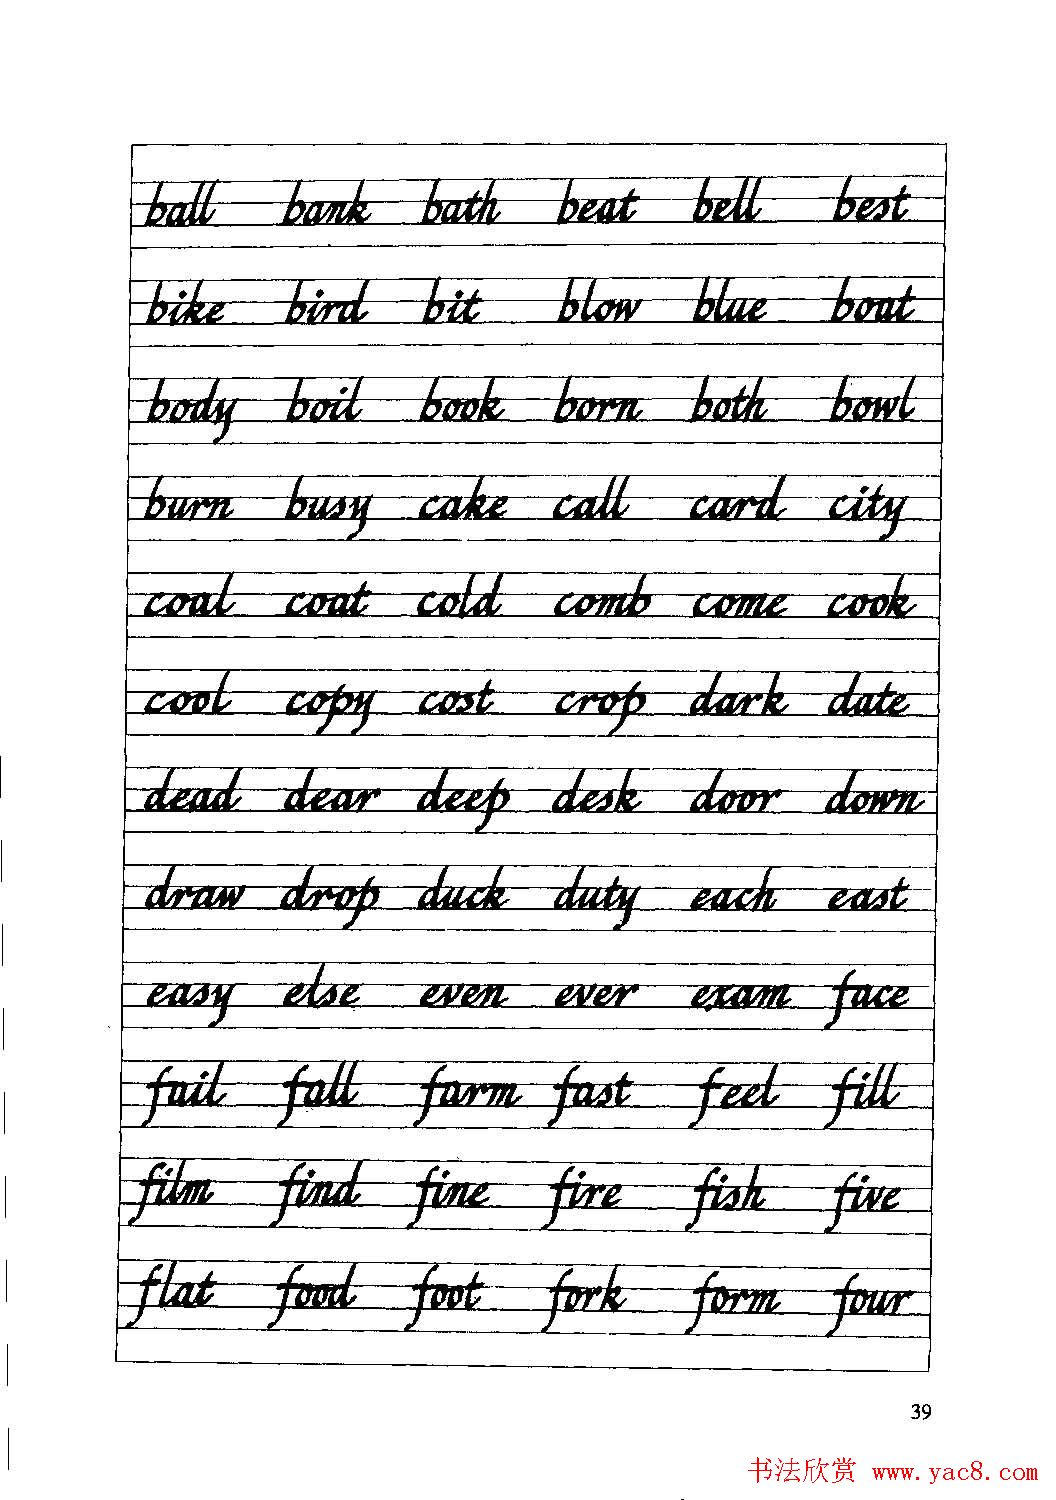 ball bank bath beat bell best
bike bird bit blow blue boat
body boil book born both bowl
burn busy cake call card city
coal coat cold comb come cook
cool copy cost crop dark date
dead dear deep desk door down
draw drop duck duty each east
easy else even ever exam face
fail fall farm fast feel fill
film find fine fire fish five
flat food foot fork form four
39
书法欣赏 www.yac8.com